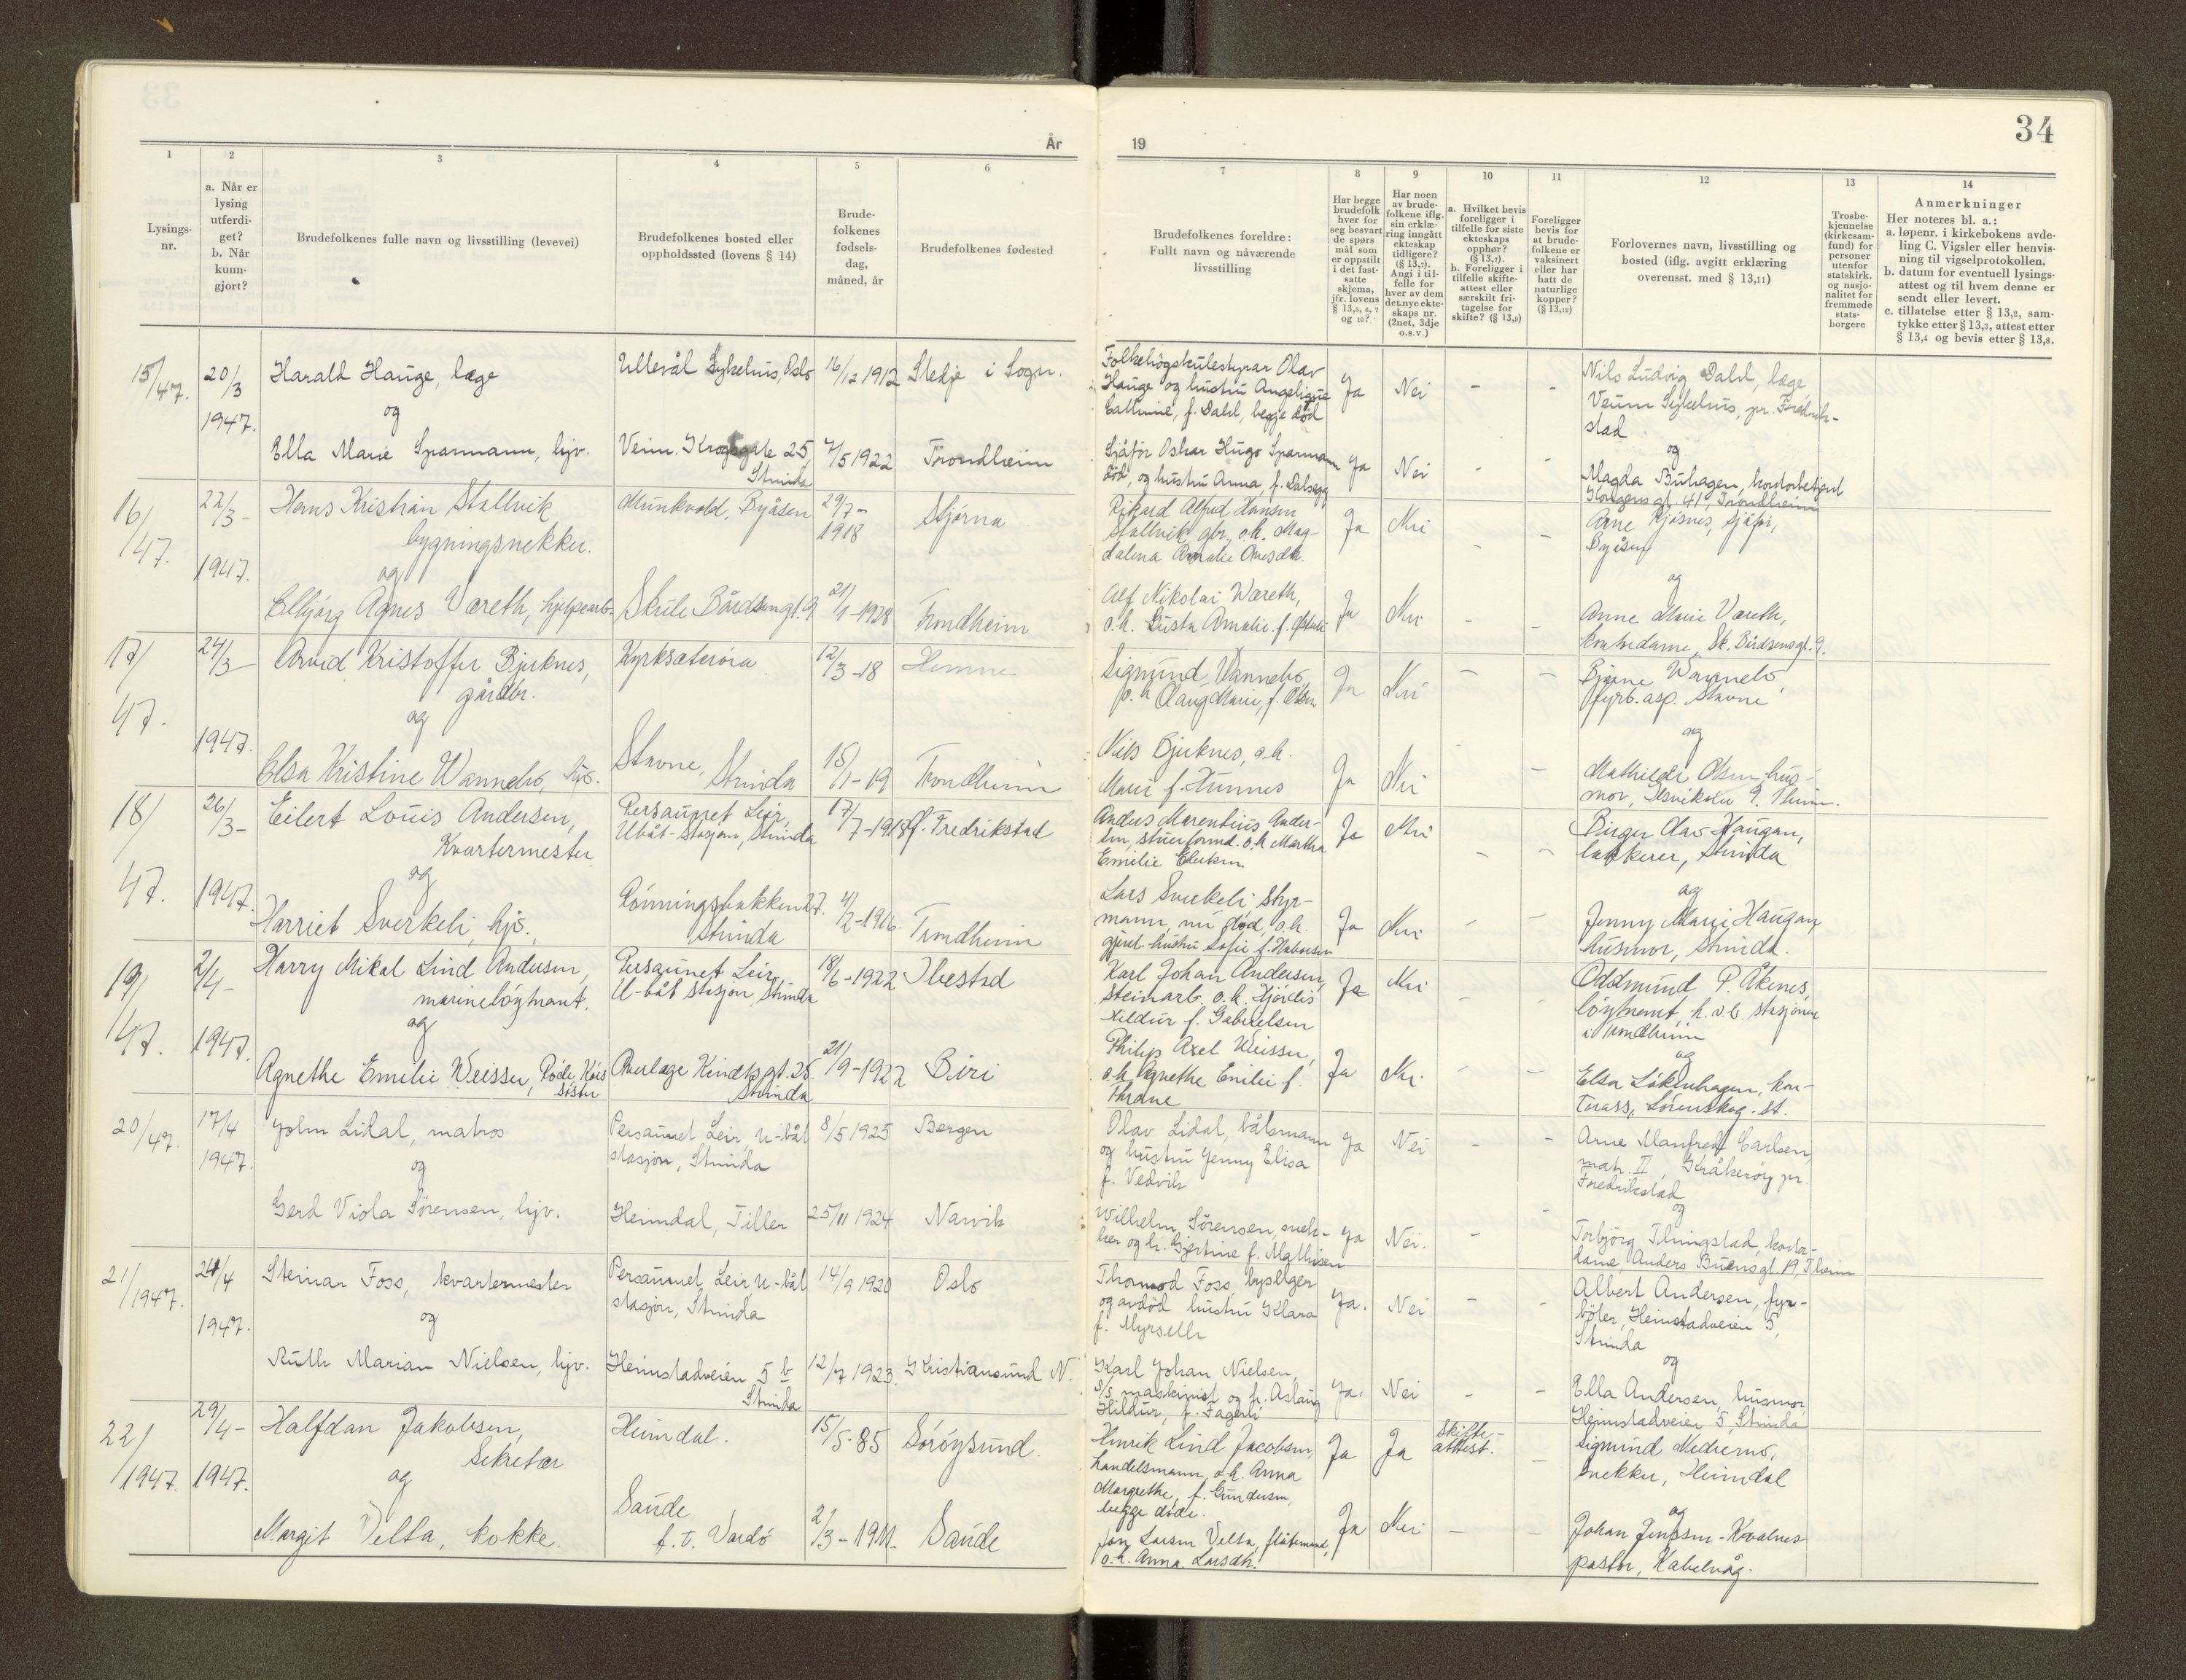 34
År
19
1
2
3
4
5
6
7
8
9
10
11
12
13
14
Lysings-
nr.
a. Når er
lysing
utferdi-
get?
b. Når
kunn-
gjort?
Brudefolkenes fulle navn og livsstilling (levevei)
Brudefolkenes bosted eller
oppholdssted (lovens § 14)
Brude-
folkenes
fødsels-
dag,
måned, år
Brudefolkenes fødested
Brudefolkenes foreldre:
Fullt navn og nåværende
livsstilling
Har begge
brudefolk
hver for
seg besvart
de spørs
mål som
er oppstilt
i det fast-
satte
skjema,
jfr. lovens
§ 13,5, 6, 7
og 10?
Har noen
av brude-
folkene iflg.
sin erklæ-
ring inngått
ekteskap
tidligere?
(§ 13,7).
Angi i til-
felle for
hver av dem
det nye ekte-
skaps nr.
(2net, 3dje
o.s.v.)
a. Hvilket bevis
foreligger i
tilfelle for siste
ekteskaps
opphør?
(§ 13,7).
b. Foreligger i
tilfelle skifte-
attest eller
særskilt fri-
tagelse for
skifte? (§ 13,9)
Foreligger
bevis for
at brude-
folkene er
vaksinert
eller har
hatt de
naturlige
kopper?
(§ 13,12)
Forlovernes navn, livsstilling og
bosted (iflg. avgitt erklæring
overensst. med § 13,11)
Trosbe-
kjennelse
(kirkesam-
fund) for
personer
utenfor
statskirk.
og nasjo-
nalitet for
fremmede
stats-
borgere
Anmerkninger
Her noteres bl. a.:
a. løpenr. i kirkebokens avde-
ling C. Vigsler eller henvis-
ning til vigselprotokollen.
b. datum for eventuell lysings-
attest og til hvem denne er
sendt eller levert.
c. tillatelse etter § 13,2, sam-
tykke etter § 13,3, attest etter
§ 13,4 og bevis etter § 13,8.
15/47.
20/3
1947.
Harald Hauge, læge
og
Ella Marie Sparmann, hjv.
Ullevål Sykehus, Oslo
Veim. Krogsgate 25,
Strinda
16/12 1912
7/5 1922
Stedje i Sogn.
Trondheim
Folkehögskulestyrar Olav
Hauge og hustru Angelique
Cathinie, f. Dahl, begge död
Sjåför Oskar Hugo Sparmann
död, og hustru Anna, f. Dalsegg
Ja
Nei
-
-
Ja
Nei
-
-
Nils Ludvig Dahl, læge
Veum Sykehus, pr. Fredrik-
stad
og
Magda Buhagen, kontorbetjent
Kongens gt. 41, Trondheim
16/47.
22/3-
1947.
Hans Kristian Stallvik
bygningsnekker.
og
Ellbjörg Agnes Væreth, hjelpearb.
Munkvold, Byåsen
Skule Bårdsensgt. 9
29/7-
1918
21/1-1928
Stjörna
Trondheim
Rikard Alfred Hansen
Stallvik, gbr., o.h. Mag-
dalena Amalie Anesdtr.
Alf Nikolai Wæreth,
o.h. Gusta Amalie f.
Ja
Nei
-
-
Ja
Nei
-
-
Arne Sjåför,
Byåsen
og
Anne Marie Væreth,
kontordame, Sk. Bårdsensgt. 9.
17/47.
24/3-
1947.
Arvid Kristoffer Bjerknes,
gårdbr.
og
Elsa Kristine Wannebo, hjv.
Kyrksæteröra
Stavne, Strinda
12/3-18
18/1-19
Hemne
Trondheim
Sigmund Wannebo,
o.h. Olaug Marie, f. Olsen
Nils Bjerknes, o.h.
Marie f. Hunnes
Ja
Nei
-
-
Ja
Nei
-
-
Bjarne Wannebo,
fyrb. asp. Stavne
og
Mathilde Olsen, hus-
mor, Ilsvikøra 9. Theim.
18/47.
26/3-
1947.
Eilert Louis Andersen,
Kvartermester
og
Harriet Sverkeli, hjv.
Persaunet Leir,
Ubåt-stasjon, Strinda
Rönningsbakken 27.
Strinda
17/7-1918
4/2-1916.
Fredrikstad
Trondheim
Anders Marentius Ander-
sen, stuerformd. o.h. Martha
Emilie Eliksen
Lars Sverkeli Styr-
mann, nu död, o.h.
gjenl. hustru Sofie f. Halvorsen
Ja
Nei
-
-
Ja
Nei
-
-
Birger Olav Haugan,
lakkerer, Strinda
og
Jenny Marie Haugan,
husmor, Strinda.
19/47.
2/4-
1947.
Harry Mikal Lind Andersen,
marinelöytnant.
og
Agnethe Emilie Weisser, Röde Kors
söster
Persaunet Leir,
U-båt stasjon, Strinda
Overlæge Kindtsgt. 25.
Strinda
18/6-1922
21/9-1922
Ibestad
Biri
Karl Johan Andersen,
steinarb. o.h. Hjördis
Hildur f. Gabrielsen
Philip Axel Weisser,
o.h. Agnethe Emilie f.
Thrane
Ja
Nei
-
-
Ja
Nei
-
-
Oddmund P. Åkenes,
löytnant, h.v.b. stasjonen
i Trondheim
og
Elsa Lökenhagen, kon-
torass, Lörenskog st.
20/47.
17/4
1947.
John Lidal, matros
og
Gerd Viola Sörensen, hjv.
Persaunet Leir, U-båt
stasjon, Strinda
Heimdal, Tiller
8/5 1925
25/11 1924
Bergen
Narvik
Olav Lidal, båtsmann
og hustru Jenny Elisa
f. Vedvik
Wilhelm Sörensen snek-
ker og h. Gjertine f. Mathisen
Ja
Nei
-
-
Ja
Nei.
-
-
Arne Manfred Carlsen,
matr. II, Kråkeröy pr.
Fredrikstad
og
Torbjörg Tlringstad, kontor-
dame, Anders Buensgt. 19, T.heim
21/1947.
21/4
1947.
Steinar Foss, kvartermester
og
Ruth Marian Nielsen, hjv.
Persaunet Leir, U-båt
stasjon, Strinda
Heimstadveien 5 b
Strinda
14/9 1920
12/7 1923.
Oslo
Kristiansund N.
Thormod Foss, byselger
og avdöd hustru Klara
f. Myrseth
Karl Johan Nielsen,
S/S maskinist og h. Aslaug
Hildur, f. Fagerli
Ja.
Nei
-
-
Ja.
Nei
-
-
Albert Andersen, fyr-
böter, Heimstadveien 5,
Strinda
og
Ella Andersen, husmor
Heimstadveien 5, Strinda
22/1947.
29/4-
1947.
Halfdan Jakobsen,
Sekretær
og
Margit Velta, kokke.
Heimdal.
Saude
f. t. Vardö
15/5-85
2/3-1911.
Söröysund.
Saude
Henrik Lind Jacobsen,
handelsmann, o.h. Anna
Margrethe, f. Gundersen,
begge döde.
Jon Larsen Velta, flötemand,
o.h. Anna Larsdtr.
Ja
Ja
Skifte-
attest.
-
Ja
Nei
-
-
Sigmund Medierud,
snekker, Heimdal
og
Johan Jenssen-Kvalnes
pastor, Kabelvåg.